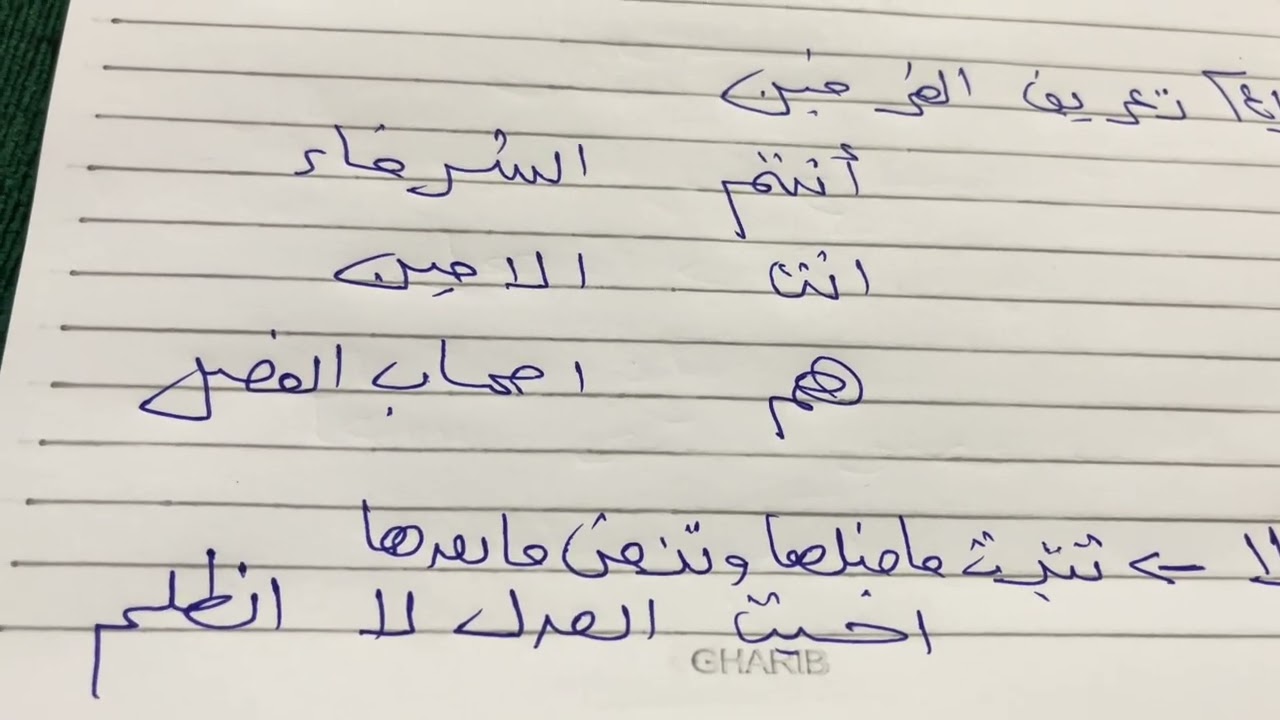 ٤] تعريف الطرفين
أنتم الشرفاء
انت الامين
هم اصحاب الفضل
لا ← تثبت ماقبلها وتنفى مابعدها
احب العدل لا الظلم
GHARIB